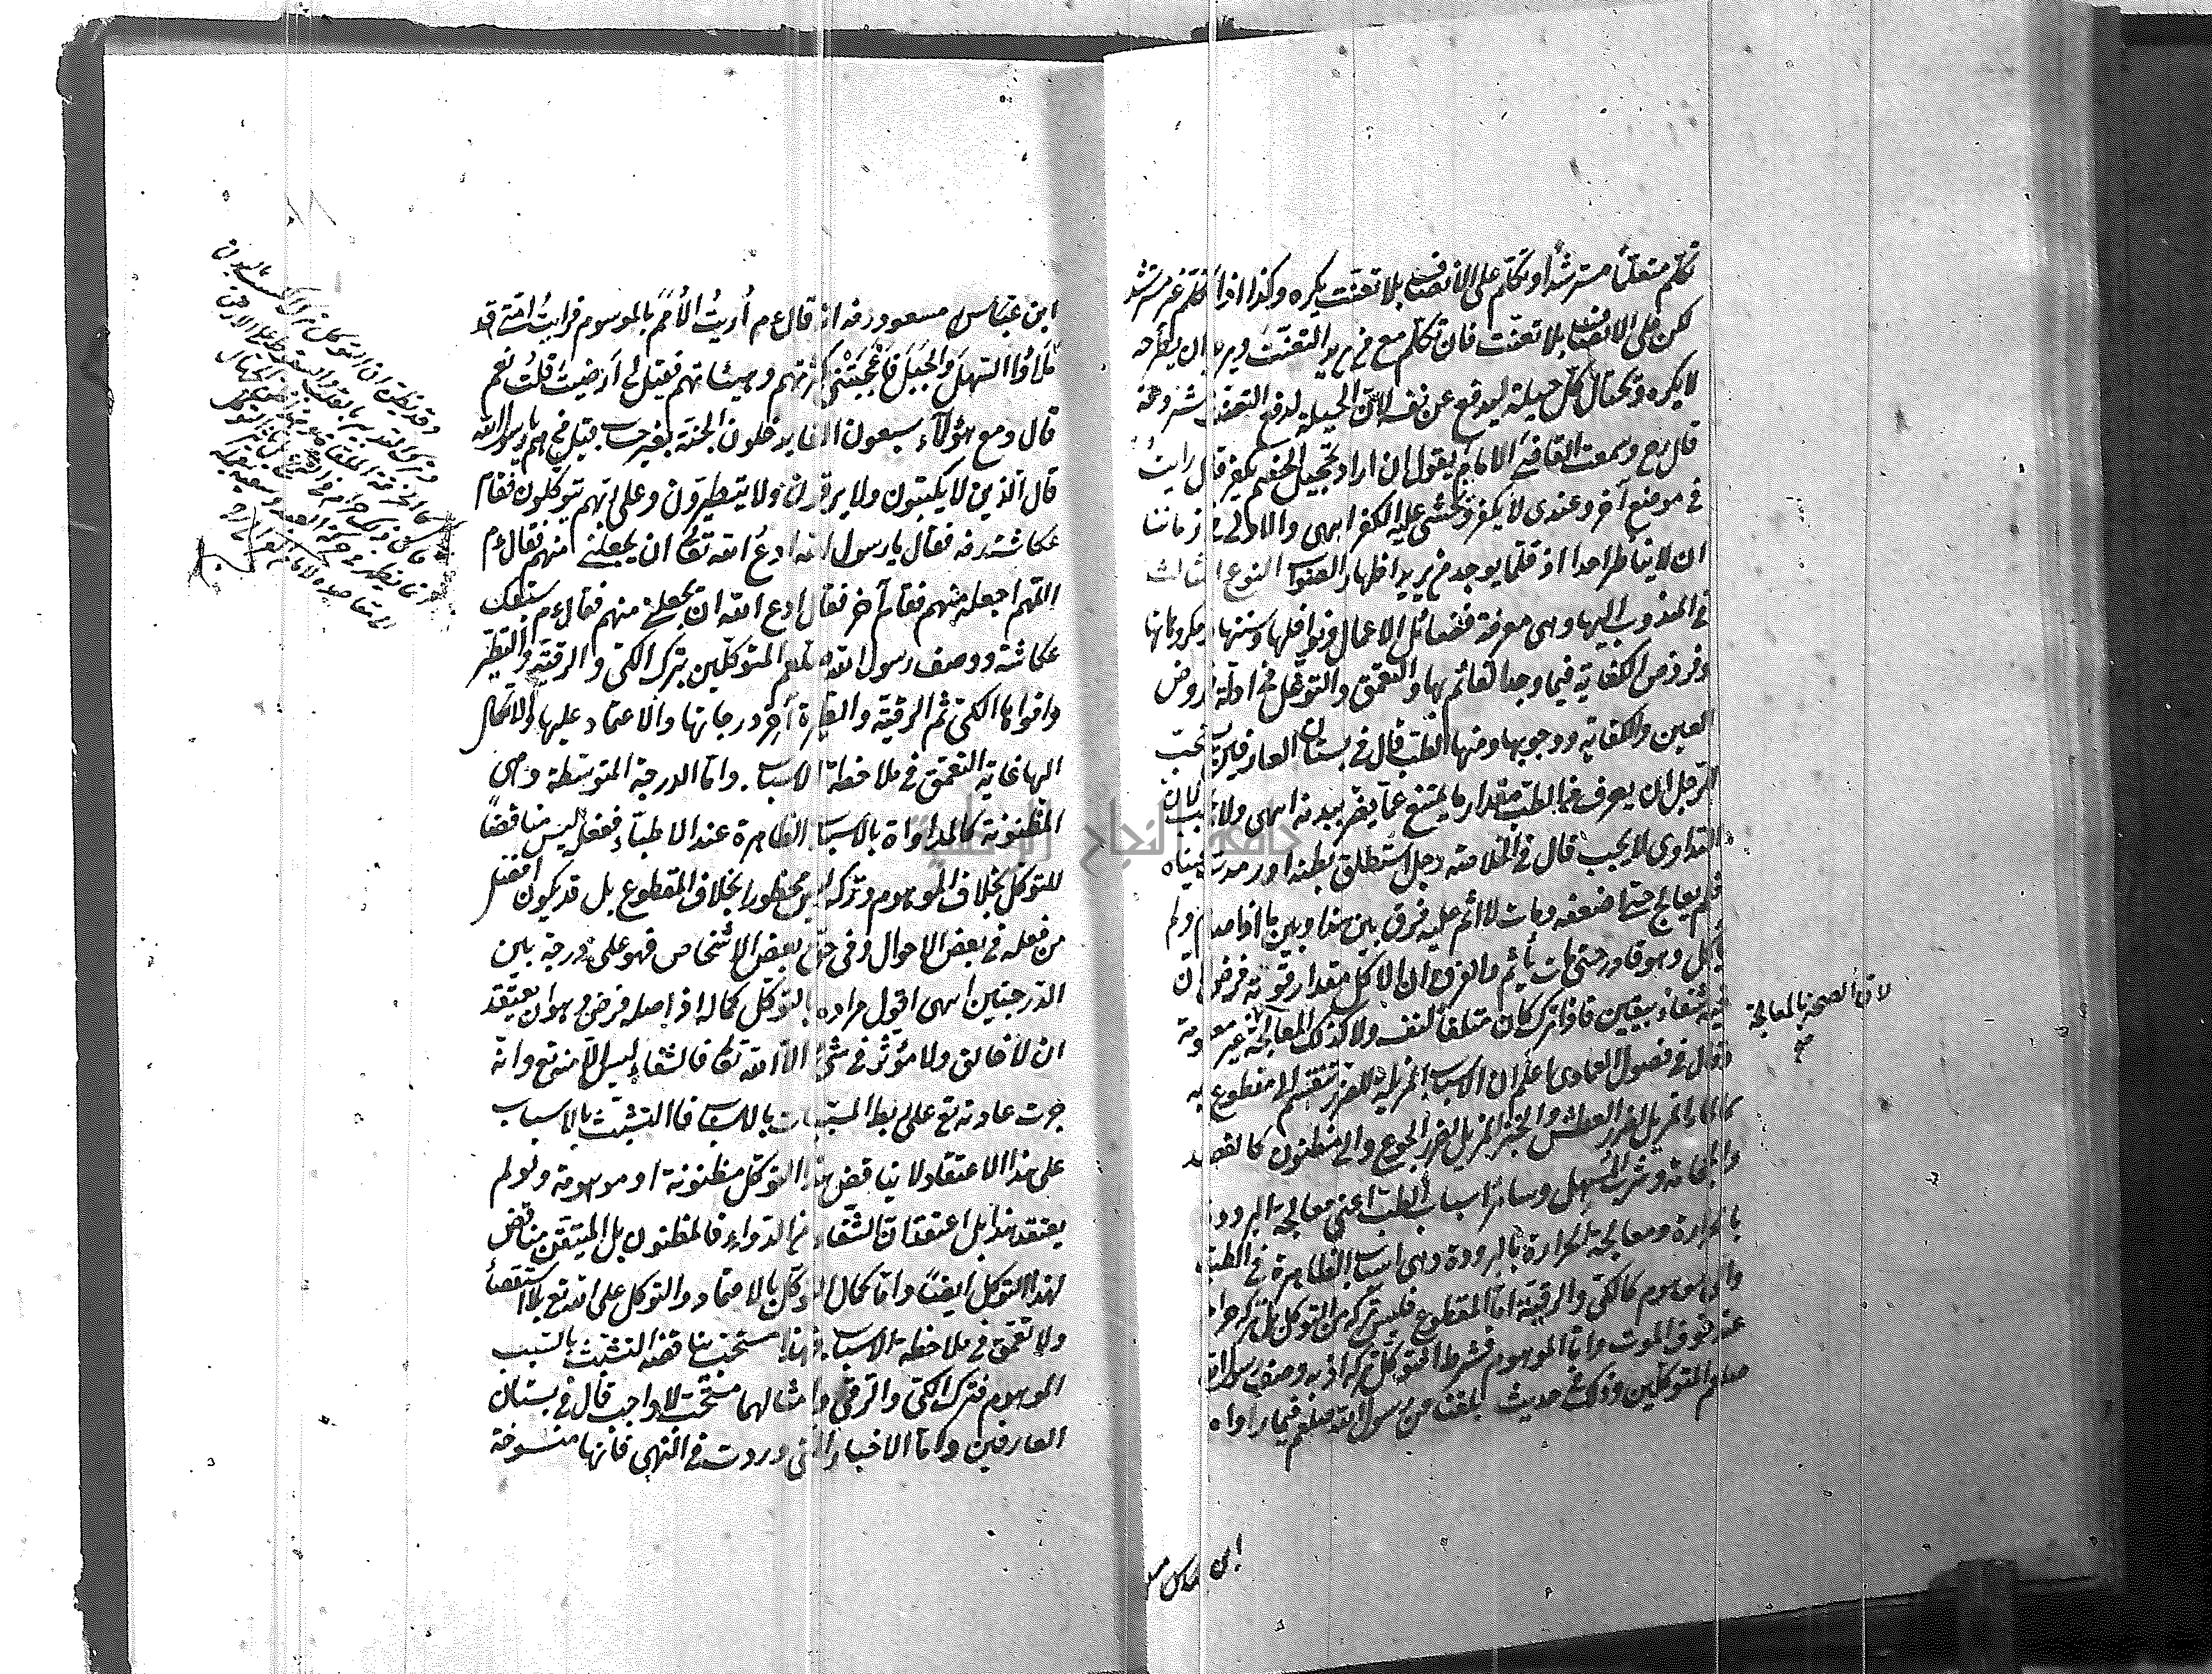 تكلم متعلماً مسترشداً او تكلم على الانصاف بلا تعنت يكره وكذا اذا تكلم غير مسترشد
لكن على الانصاف بلا تعنت فان تكلم مع من يريد التعنت ويريد ان يطرحه
لا يكره ويحتال كل حيلة ليدفع عن نفسه لان الحيلة لدفع التعنت مشروعة
قال رح وسمعت القاضى الامام يقول ان اراد تخجيل الخصم يكفر قال رأيت
فى موضع آخر وعندى لا يكفر ويخشى عليه الكفر انتهى والاولى فى زماننا
ان لا يناظر احدا اذ قلما يوجد من يريد اظهار الصواب النوع الثالث
فى المندوب اليها وهى معرفة فضائل الاعمال ونوافلها وسننها ومكروهاتها
وفروض الكفاية فيما وجد القائم بها والتعمق والتوغل فى ادلة فروض
العين والكفاية ووجوبها ومنها الطب قال فى بستان العارفين يستحب
للرجل ان يعرف من الطب مقدار ما يمتنع عما يضر ببدنه انتهى ولا يجب لان
التداوى لا يجب قال فى الخلاصة رجل استطلق بطنه او رمدت عيناه
فلم يعالج حتى اضعفه ومات لا اثم عليه فرق بين هذا وبين ما اذا صام ولم
يأكل وهو قادر حتى مات يأثم والفرق ان الاكل مقدار قوته فرض لان
فيه شفاء بيقين فاذا ترك كان متلفا لنفسه ولا كذلك المعالجة غير معلومة
لان الصحة بالمعالجة
وقال فى فصول العمادى اعلم ان الاسباب المزيلة للضرر تنقسم الى مقطوع به
كالماء المزيل لضرر العطش والخبز المزيل لضرر الجوع والى مظنون كالفصد
والحجامة وشرب المسهل وسائر اسباب الطب اعنى معالجة البرودة
بالحرارة ومعالجة الحرارة بالبرودة وهى اسباب الظاهرة فى الطب
والى موهوم كالكى والرقية اما المقطوع فليس تركه من التوكل بل تركه حرام
عند خوف الموت واما الموهوم فشرط التوكل تركه اذ به وصف رسول الله
صلعم المتوكلين وذلك فى حديث بلغنا من رسول الله صلعم فيما رواه
ابن عباس
ابن عباس مسعود رضه انه قال عم أُريتُ الأُمَمَ بالموسوم فرايتُ امتى قد
مَلَأوا السَّهلَ والجَبَل فأعْجَبَتْنى كثرتهم وهيئاتهم فقيل لى أرضيتَ قلتُ نعم
قال ومع هؤلاء سبعون الفا يدخلون الجنة بغير حساب قيل من هم يا رسول الله
قال الذين لا يكتوون ولا يرقون ولا يتطيرون وعلى ربهم يتوكلون فقام
عكاشة رضه فقال يا رسول الله ادعُ الله تعالى ان يجعلنى منهم فقال عم
اللهم اجعله منهم فقام آخر فقال ادع الله ان يجعلنى منهم فقال عم سبقك
عكاشة ووصف رسول الله صلعم المتوكلين بترك الكى والرقية والتطير
واقواها الكى ثم الرقية والطيرة آخر درجاتها والاعتماد عليها والاتكال
اليها غاية التعمق فى ملاحظة الاسباب. واما الدرجة المتوسطة وهى
المظنونة كالمداواة بالاسباب الظاهرة عند الاطباء ففعله ليس مناقضاً
للتوكل بخلاف الموهوم وتركه ليس محظورا بخلاف المقطوع بل قد يكون افضل
من فعله فى بعض الاحوال وفى حق بعض الاشخاص فهو على درجة بين
الدرجتين انتهى اقول مراده بالتوكل كماله اذ اصله فرض وهو ان يعتقد
ان لا خالق ولا مؤثر فى شئ الا الله تعالى فالشفاء ليس الا منه تع وانه
جرت عادته تع على ربط المسببات بالاسباب فاالتشبث بالاسباب
على هذا الاعتقاد لا يناقض هذا التوكل مظنونة او موهومة ولو لم
يعتقد هذا بل اعتقد ان الشفاء من الدواء فالمظنون بل المتيقن مناقض
لهذا التوكل ايضاً واما كمال التوكل بالاعتماد والتوكل على الله تع بلا استقصأ
ولا تعمق فى ملاحظة الاسباب فهذا مستحب يناقضه التشبث بالسبب
الموهوم فترك الكى والرقى وامثالهما مستحب لا واجب قال فى بستان
العارفين واما الاخبار التى وردت فى النهى فانها منسوخة